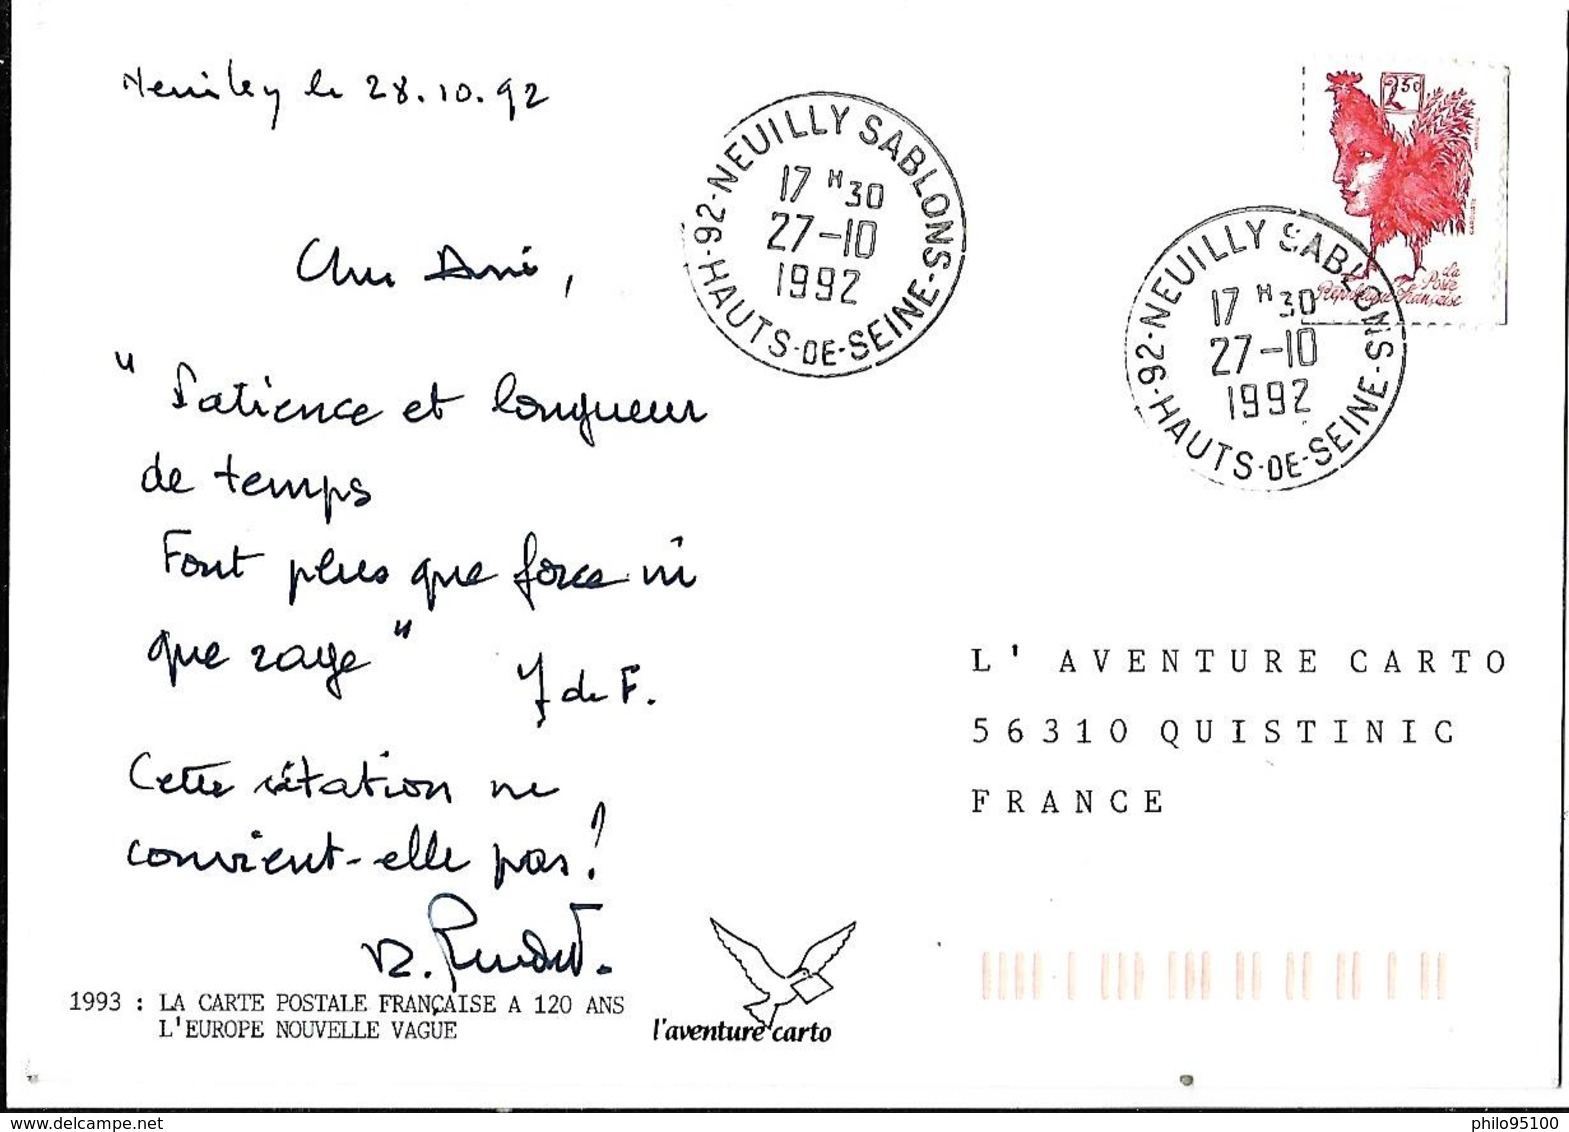 Neuilly le 28.10.92
Cher Ami,
" Patience et longueur
de temps
Font plus que force ni
que rage "
J de F.
Cette citation ne
convient-elle pas ?
1993 : LA CARTE POSTALE FRANÇAISE A 120 ANS
L'EUROPE NOUVELLE VAGUE
l'aventure carto
92-NEUILLY SABLONS-HAUTS-DE-SEINE
17 H 30
27-10
1992
2,50
La
Poste
République Française
92-NEUILLY SABLONS-HAUTS-DE-SEINE
17 H 30
27-10
1992
L' AVENTURE CARTO
56310 QUISTINIC
FRANCE
delcampe.net
philo95100